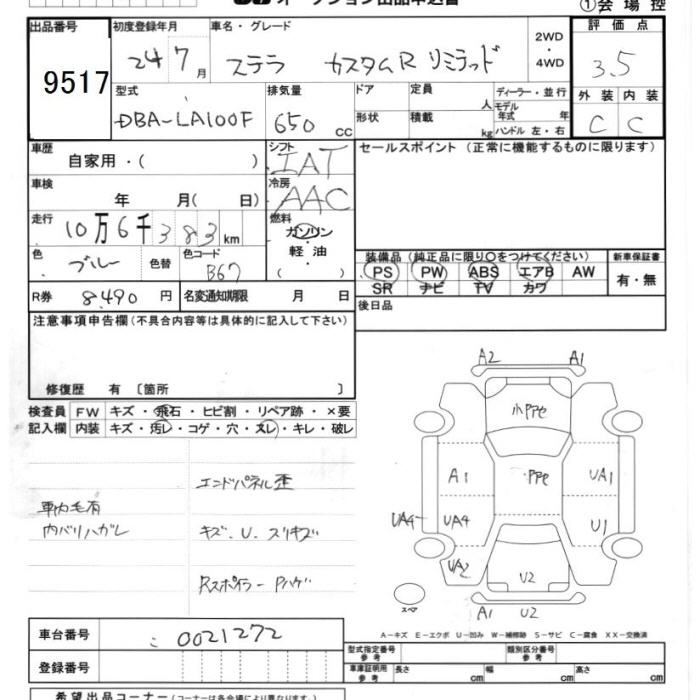 ①会場控
出品番号 初度登録年月 車名・グレード 2WD・4WD 評価点
9517 24 7月 ステラ カスタムR リミテッド 3.5
型式 排気量 ドア 定員 人 ディーラー・並行 外装 内装
DBA-LA100F 650 CC 形状 積載 kg モデル年式 年 ハンドル 左・右 C C
車歴 シフト セールスポイント(正常に機能するものに限ります)
自家用・( ) IAT
車検 冷房
年 月( 日) AAC
走行 燃料
10万6千383km ガソリン
色 色替 色コード 軽油 装備品(純正品に限り○をつけてください) 新車保証書
ブルー B67 ・( ) PS PW ABS エアB AW 有・無
SR ナビ TV カワ
R券 8,490円 名変通知期限 月 日 後日品
注意事項申告欄(不具合内容等は具体的に記入して下さい)
修復歴 有 〔箇所 〕
検査員 FW キズ・飛石・ヒビ割・リペア跡・×要
記入欄 内装 キズ・汚レ・コゲ・穴・スレ・キレ・破レ
エンドパネル歪
車内毛有
内バリハガレ キズ.U.スリキズ
Rスポイラー Pハゲ
A2 A1
小PPe
A1 PPe UA1
UA4 UA4 U1
UA2 U2
スペア A1 U2
車台番号 : 0021272
A−キズ E−エクボ U−凹み W−補修跡 S−サビ C−腐食 XX−交換済
登録番号 型式指定番号 参考 類別区分番号 参考
車庫証明用 参考 長さ cm 幅 cm 高さ cm
希望出品コーナー(コーナーは各会場により異なります)